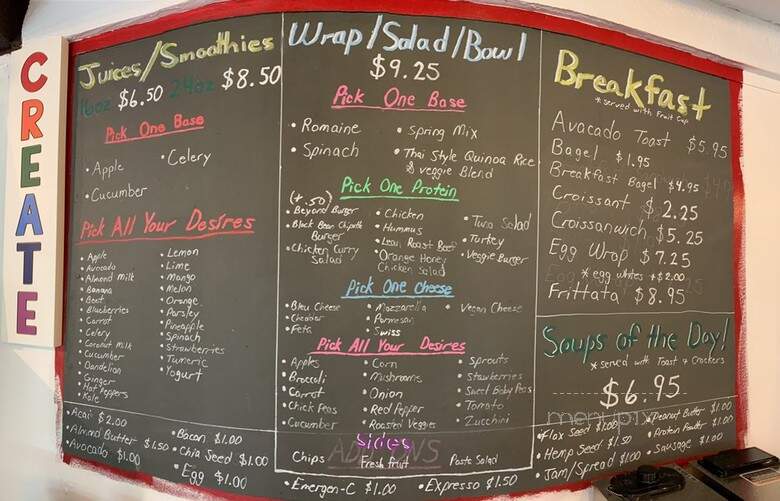 CREATE
Juices/Smoothies
16oz $6.50 24oz $8.50
Pick One Base
• Apple
• Celery
• Cucumber
Pick All Your Desires
Apple
• Avocado
• Almond Milk
• Banana
• Beet
• Blueberries
• Carrot
• Celery
• Coconut Milk
• Cucumber
• Dandelion
• Ginger
• Hot Peppers
• Kale
• Lemon
• Lime
• Mango
• Melon
• Orange
• Parsley
• Pineapple
• Spinach
• Strawberries
• Tumeric
• Yogurt
• Acai $2.00
• Almond Butter $1.50
• Avocado $1.00
• Bacon $1.00
• Chia Seed $1.00
• Egg $1.00
Wrap/Salad/Bowl
$9.25
Pick One Base
• Romaine
• Spinach
• Spring Mix
• Thai Style Quinoa Rice
& veggie Blend
Pick One Protein
(+.50)
• Beyond Burger
• Black Bean Chipotle
Burger
• Chicken Curry
Salad
• Chicken
• Hummus
• Lean Roast Beef
• Orange Honey
Chicken Salad
• Tuna Salad
• Turkey
• Veggie Burger
Pick One Cheese
• Bleu Cheese
• Cheddar
• Feta
• Mozzarella
• Parmesan
• Swiss
• Vegan Cheese
Pick All Your Desires
• Apples
• Broccoli
• Carrot
• Chick Peas
• Cucumber
• Corn
• Mushrooms
• Onion
• Red Pepper
• Roasted Veggies
• Sprouts
• Strawberries
• Sweet Baby Peas
• Tomato
• Zucchini
Sides
ADD ONS
Chips
Fresh fruit
Pasta Salad
• Emergen-C $1.00
• Expresso $1.50
Breakfast
* served with Fruit Cup
Avacado Toast $5.95
Bagel $1.95
Breakfast Bagel $4.95
Croissant $2.25
Croissanwich $5.25
Egg Wrap $7.25
* egg whites +$2.00
Frittata $8.95
Soups of the Day!
* served with Toast & Crackers
$6.95
menupix
• Flax Seed $1.00
• Hemp Seed $1.50
• Jam/Spread $1.00
• Peanut Butter $1.00
• Protein Powder $1.00
• Sausage $1.00